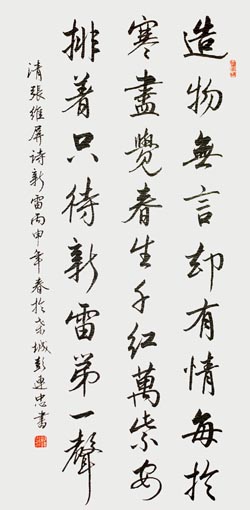 造物無言却有情每於
寒盡覺春生千紅萬紫安
排着只待新雷第一聲
清張維屏诗新雷丙申年春於荣城彭连忠書